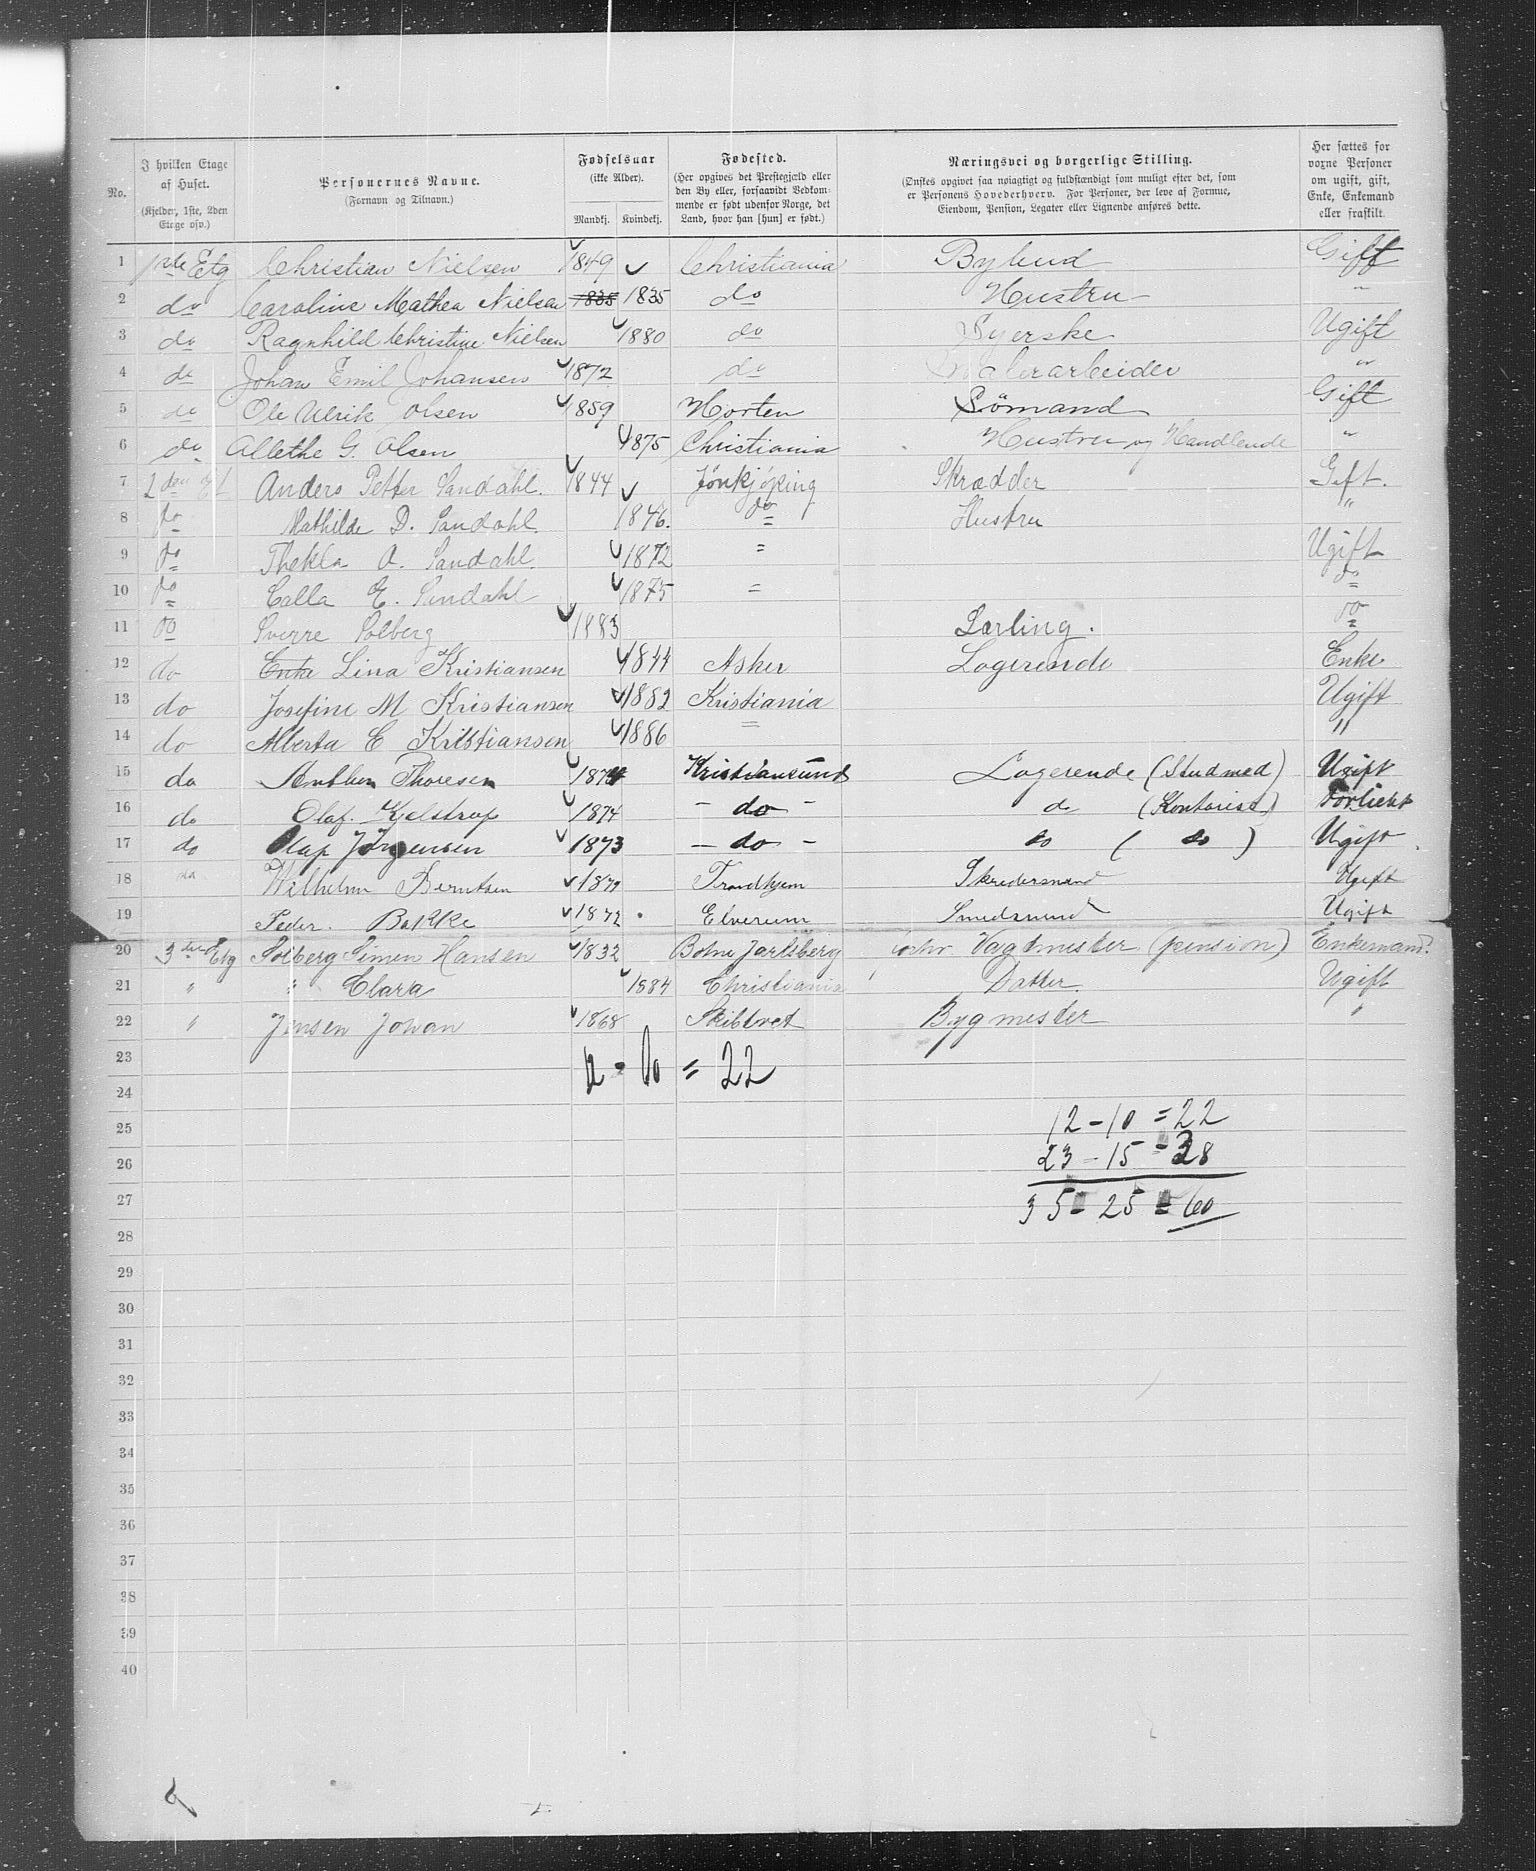 No.
I hvilken Etage af Huset. (Kjelder, 1ste, 2den Etage osv.)
Personernes Navne. (Fornavn og Tilnavn.)
Fødselsaar (ikke Alder).
Mandkj. Kvindekj.
Fødested. (Her opgives det Prestegjæld eller den By eller, forsaavidt Vedkommende er født udenfor Norge, det Land, hvor han [hun] er født.)
Næringsvei og borgerlige Stilling. (Ønskes opgivet saa nøiagtigt og fuldstændigt som muligt efter det, som er Personens Hovederhverv. For Personer, der leve af Formue, Eiendom, Pension, Legater eller Lignende anføres dette.
Her sættes for voxne Personer om ugift, gift, Enke, Enkemand eller fraskilt.
1 1ste Etg Christian Nielsen 1849 Christiania Bybud Gift
2 do Caroline Mathea Nielsen 1835 1835 do Hustru "
3 do Ragnhild Christine Nielsen 1880 do Syerske Ugift
4 do Johan Emil Johansen 1872 do Malerarbeider "
5 do Ole Ulrik Olsen 1859 Horten Sömand Gift
6 do Allethe G. Olsen 1875 Christiania Hustru og Handlende "
7 2den Et Anders Petter Sandahl. 1844 Jönkjöping Skrædder Gift.
8 do Mathilde D. Sandahl. 1846. do Hustru "
9 do Thekla A. Sandahl. 1872 = Ugift
10 do Calla E. Sandahl 1875 = do
11 do Sverre Solberg 1883 Lærling. do
12 do Enke Lina Kristiansen 1844 Asker Logerende Enke
13 do Josefine M Kristiansen 1882 Kristiania Ugift
14 do Alberta C Kristiansen 1886 = "
15 do Thoresen 1874 Kristiansund Logerende (Stud med) Ugift
16 do Olaf. Kjelstrup 1874 - do - do (Kontorist) Forlovet
17 do Olaf Jørgensen 1873 - do - do ( do ) Ugift
18 do Wilhelm Berntsen Trondhjem Skredersvend Ugift
19 Peder. Bakke 1872 Elverum Smedsvend Ugift
20 3die Etg Solberg Simen Hansen 1832 Botne Jarlsberg Vagtmester (pension) Enkemand.
21 " " Clara 1884 Christiania Datter. Ugift
22 " Jensen Johan 1868 Skibtvet Bygmester "
23 12 - 10 = 22
24
25 12 - 10 = 22
26 23 - 15 - 38
27 35 - 25 = 60
28
29
30
31
32
33
34
35
36
37
38
39
40